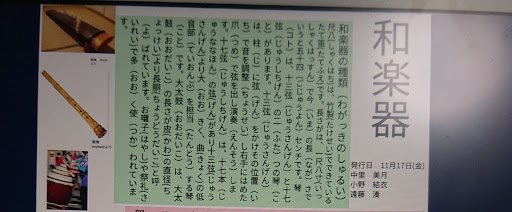 和楽器
発行日 11月17日(金)
中里 美月
小野 結衣
遠藤 湊
和楽器の種類（わがっきのしゅるい）
尺八（しゃくはち）は、竹製（たけせい）でできている
たて笛（たてぶえ）です。長さが、一尺八寸（いっ
しゃくはっすん）で今（いま）の長（なが）さで
いうと五十四（ごじゅうよん）センチです。琴
（コト）は、十三弦（じゅうさんげん）と十七
弦（じゅうしちげん）の二（ふた）つの琴（こ
と）があります。十三弦（じゅうさんげん）
は、柱（じ）に弦（げん）をかけその位置（い
ち）で音を調整（ちょうせい）し右手にはめた
爪（つめ）で弦を出し演奏（えんそう）しま
す。十七弦（じゅうしちげん）は、十七本（じ
ゅうななほん）の弦（げん）があり十三弦（じゅう
さんげん）より大（おお）きく、曲（きょく）の低
音部（ていおんぶ）を担当（たんとう）する琴
（こと）です。大太鼓（おおだいこ）は、大太
鼓（おおだいこ）の長さが皮（かわ）の直径（ち
ょっけい）より長胴（ちょうどう）だいこと呼
（よ）ばれています。お囃子（はやし）や祭礼（さ
いれい）で多（おお）く使（つか）われていま
す。